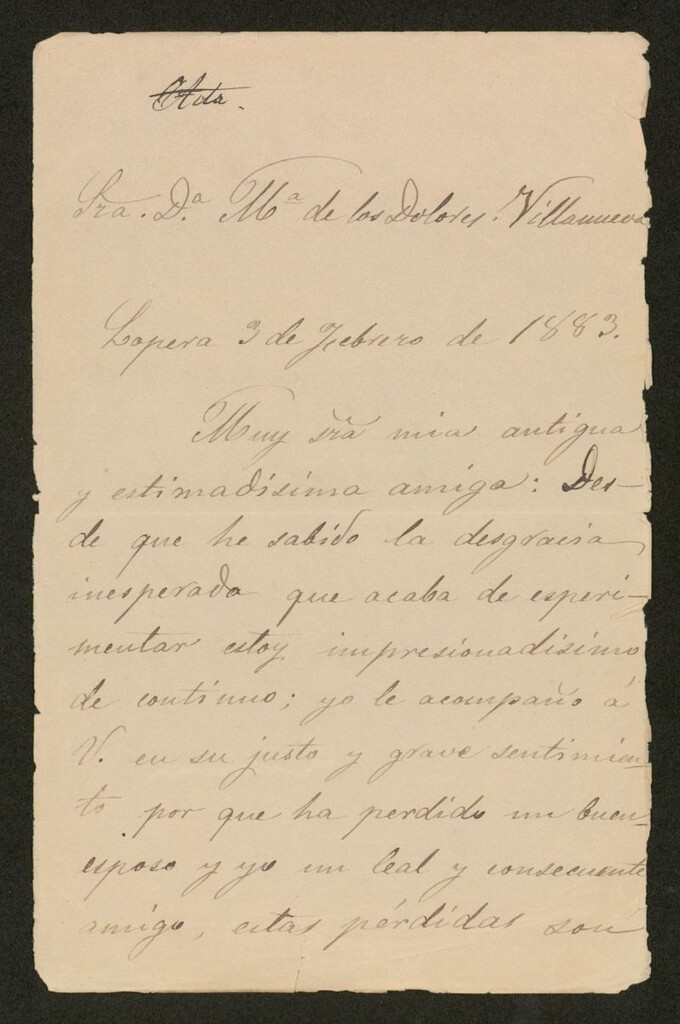 Ctda.
Sra. D.ª Mª de los Dolores Villanueva
Lopera 3 de Febrero de 1883.
Muy srã mia antigua
y estimadísima amiga: Des-
de que he sabido la desgracia
inesperada que acaba de esperi-
mentar estoy impresionadisimo
de continuo; yo le acompaño á
V. en su justo y grave sentimien-
to por que ha perdido un buen
esposo y yo un leal y consecuente
amigo, estas pérdidas son